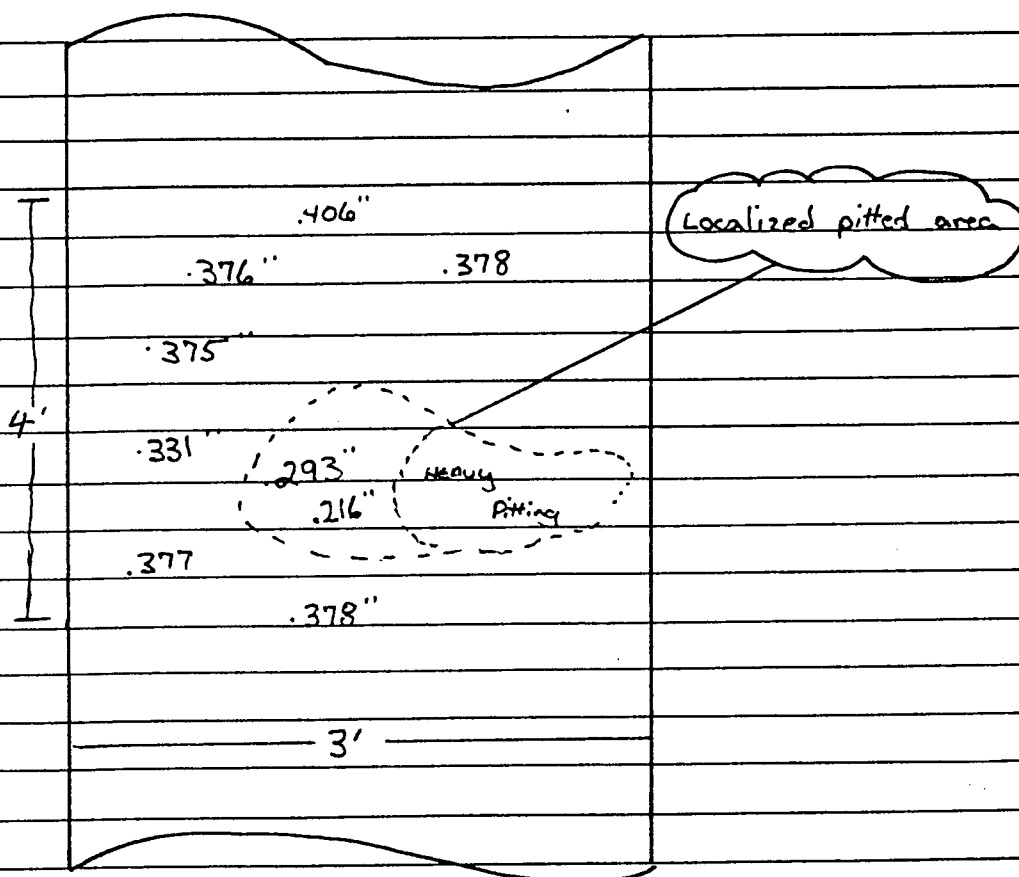 .406"
Localized pitted area
.376" .378
.375"
4'
.331"
.293"
Heavy
.216"
Pitting
.377
.378"
3'